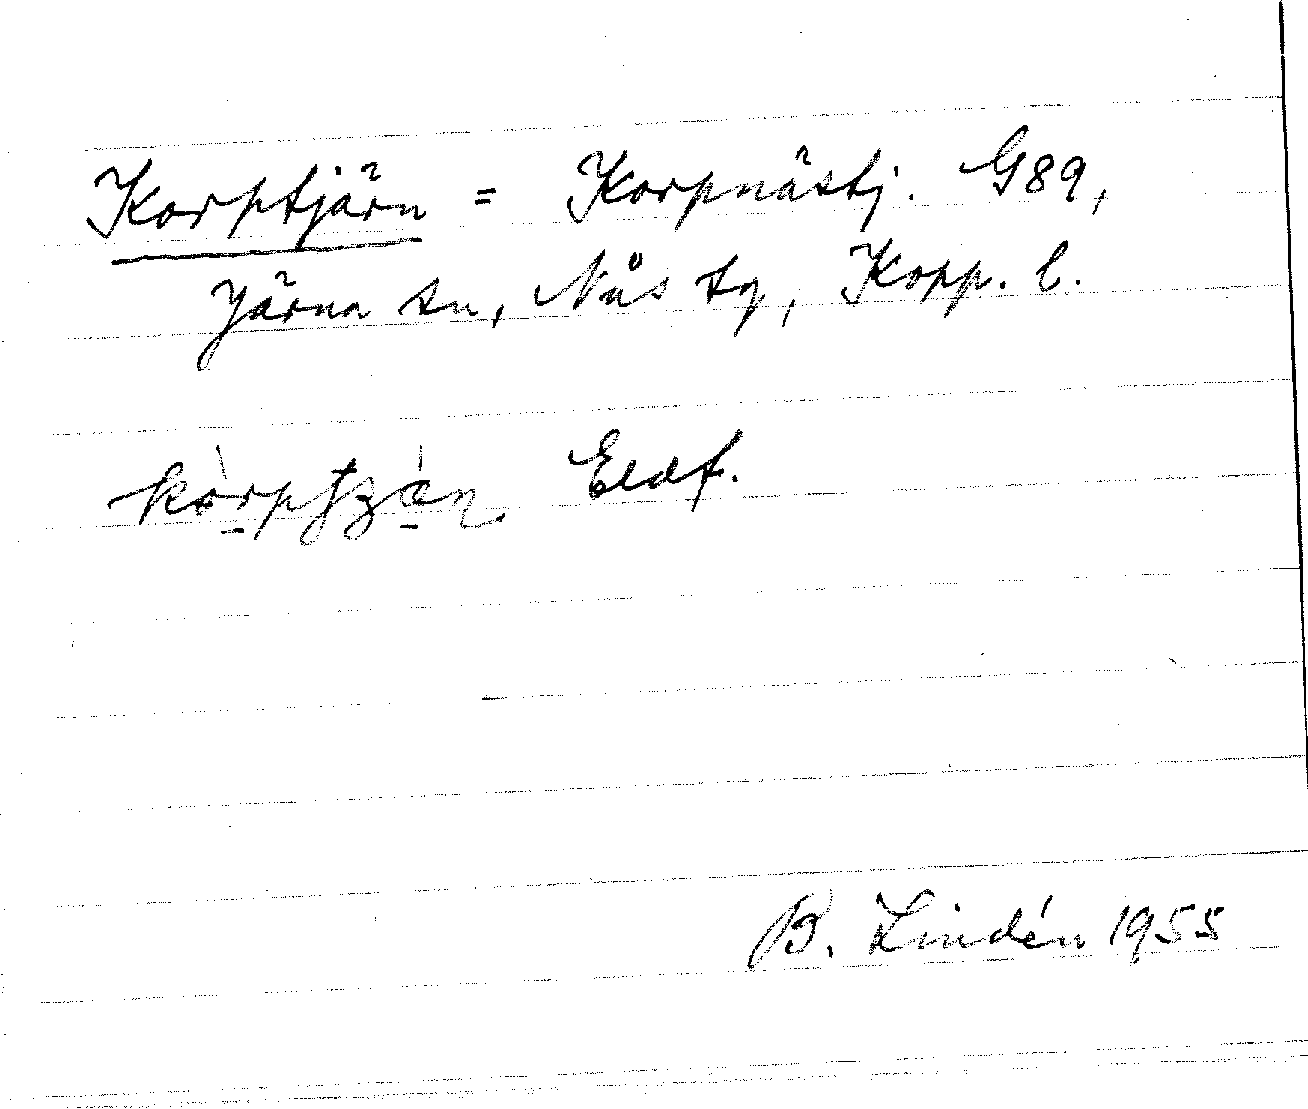 Korptjärn = Korpnästj. G89,
Järna sn, Nås tg, Kopp. l.
Eldf.
B. Lindén 1955